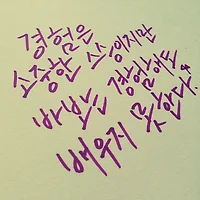 경험은
소중한 스승이지만
바보는 경험해도
배우지 못한다.